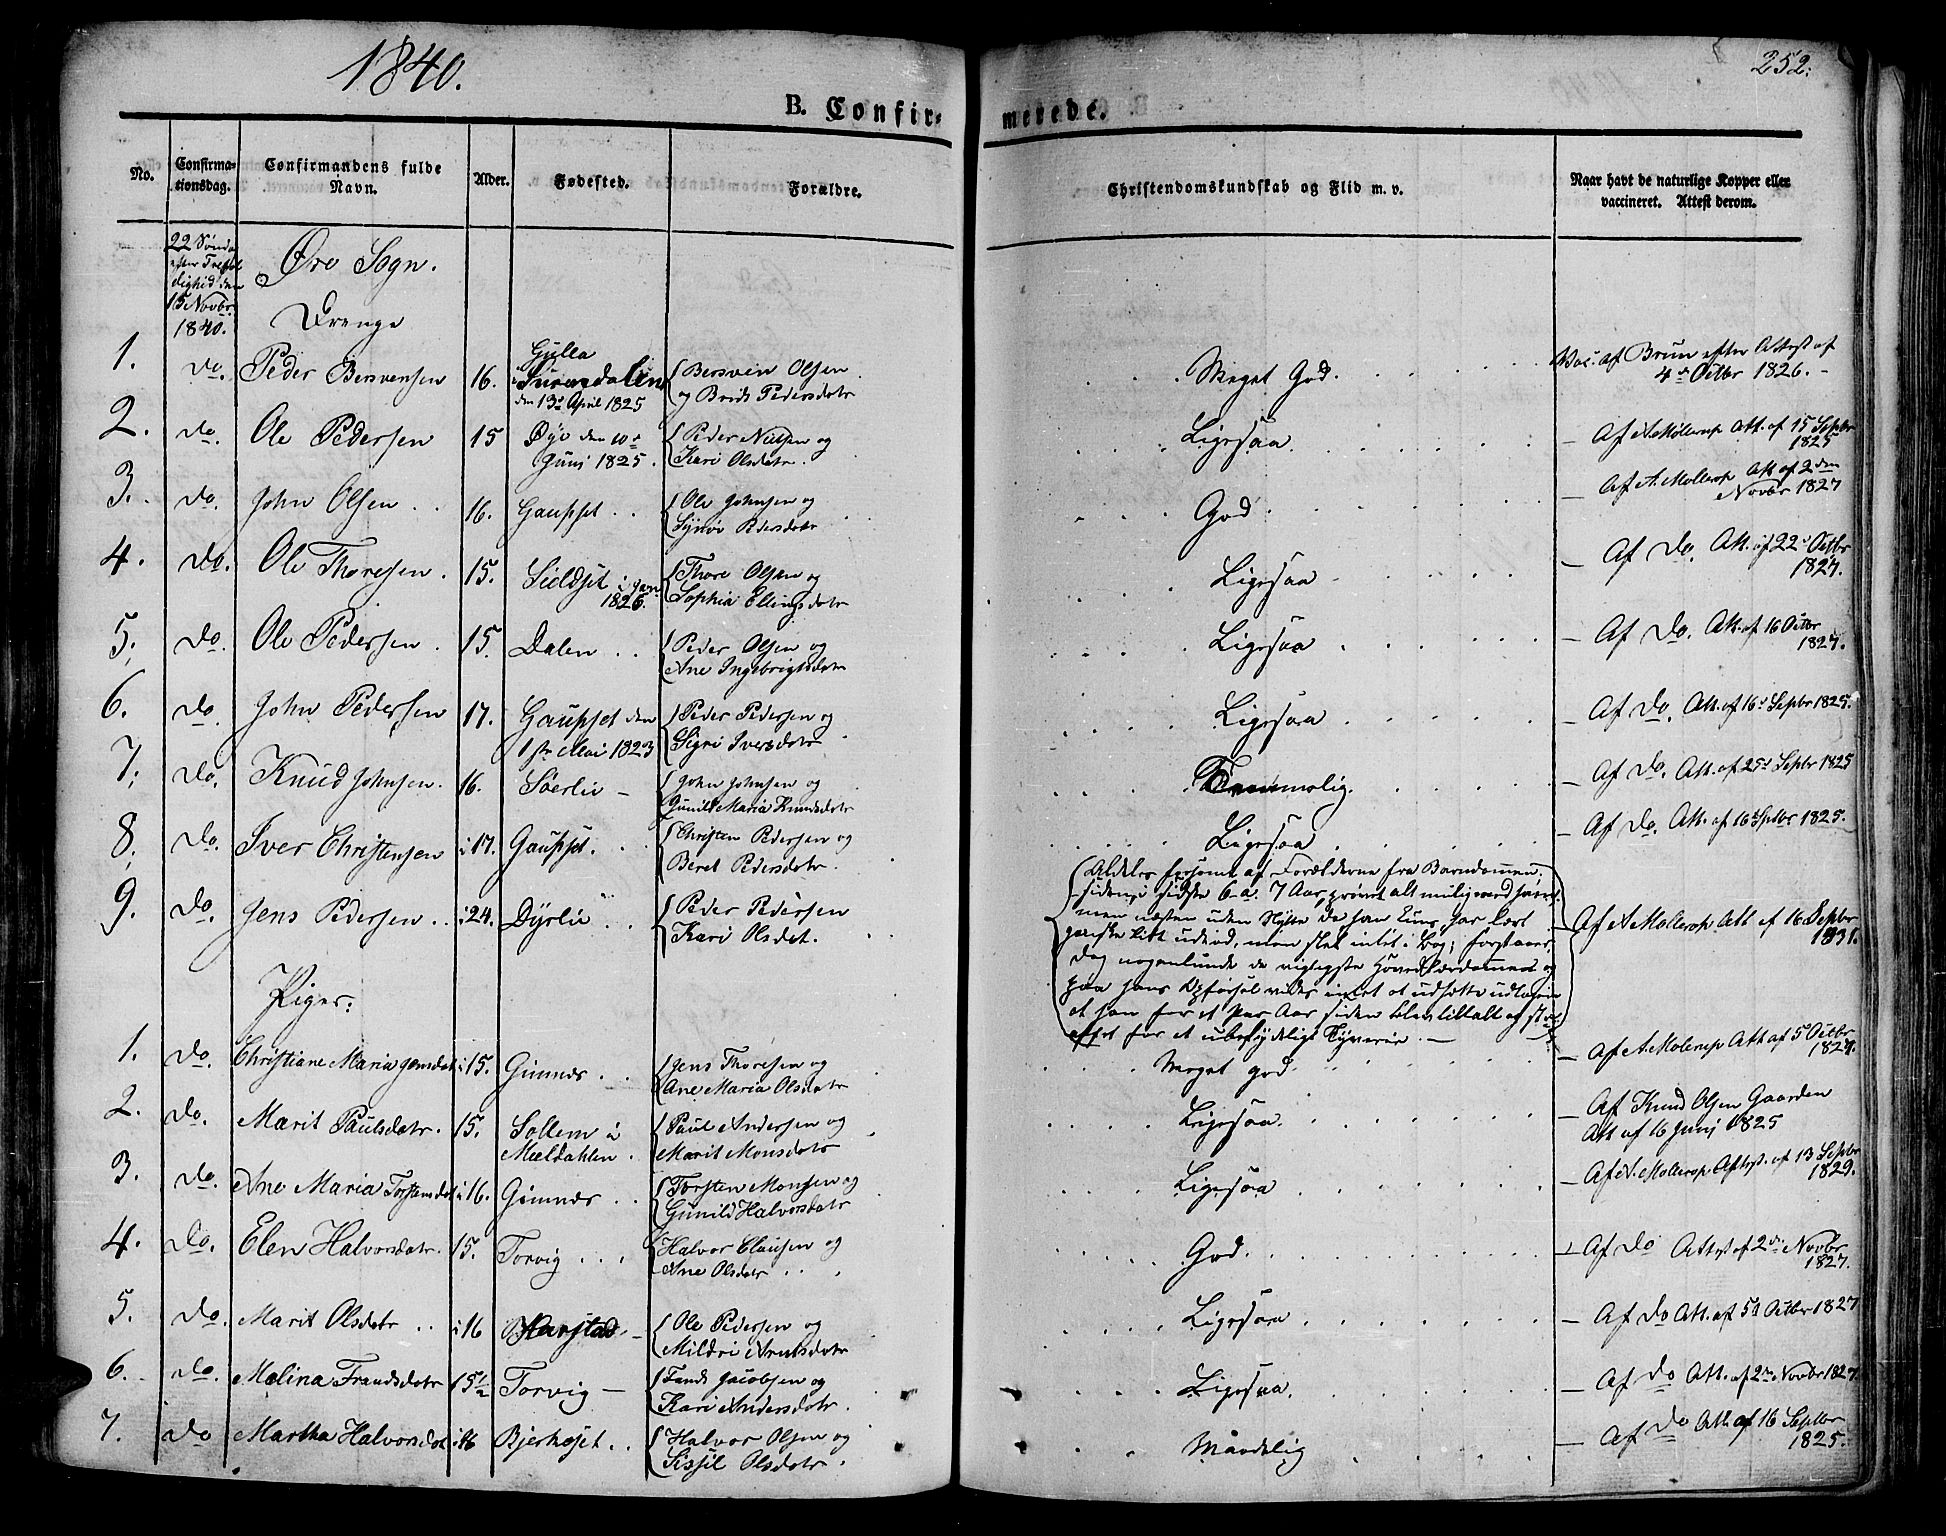 1840.
252.
B. Confir-
merede.
No.
Confirma-
tionsdag.
Confirmandens fulde
Navn.
Alder.
Fødested.
Forældre.
Christendomskundskab og Flid m. v.
Naar havt de naturlige Kopper eller
vaccineret. Attest derom.
22 Sønda
efter Trefol
dighed den
15 Novbr
1840.
Øre Sogn.
Drenge
1. do. Peder Bersvensen 16. Gulla
i Surendalen
den 13de April 1825
Bersven Olsen
og Brit Pedersdatr
Meget God.
Vac. af Brun efter Attest af
4de Octbr 1826. -
2. do. Ole Pedersen 15 Øye den 10de
Juni 1825.
Peder Nielsen og
Kari Olsdatr.
Ligesaa.
- Af A. Møllerop Att. af 15 Sepbr
1825
3. do. John Olsen 16. Gaupset
Ole Johnsen og
Synnøv Pedersdatr
God.
- Af A. Mollerop Att af 2den
Novbr 1827
4. do. Ole Thoresen. 15. Sieldset i Jan
1826.
Thore Olsen og
Sophia Ellingsdatr
Ligesaa
- Af do. Att. af 22de Octbr
1827.
5. do. Ole Pedersen. 15. Dalen
Peder Olsen og
Ane Ingebrigtsdatr
Ligesaa
- Af do. Att. af 16 Octbr
1827.
6. do John Pedersen 17. Gaupset den
1ste Mai 1823
Peder Pedersen og
Sigri Iversdatr
Ligesaa
- Af do. Att. af 16de Sepbr 1825.
7. do. Knud Johnsen. 16. Søerlie -
John Johnsen og
Gunild Maria Knudsdatr
Temmelig.
- Af do. Att. af 25de Sepbr 1825
8. do. Iver Christensen i 17. Gaupset.
Christen Pedersen og
Beret Pedersdatr
Ligesaa
- Af do. Att. af 16de Sepbr 1825.
9. do. Jens Pedersen i 24. Dyrlie
Peder Pedersen
Kari Olsdat.
Aldeles forsømt af Forældrene fra Barndommen;
siden i sidste 6 a 7 Aar prøvet alt mulig
men næsten uden Nytte da han
ganske lidt udvod, men slet intet i Bog; forstaaer
dog nogenlunde de vigtigste Hovedlærdomme og
paa hans Opførsel vides intet at udsætte
at han for et Par Aar siden blev tiltalt og
for et ubetydeligt Tyverie. -
Af A. Mollerop Att af 16 Sepbr
1831.
Piger:
1. do. Christiane Maria Jensdat i 15. Gimnes
Jens Thoresen og
Ane Maria Olsdatr
Meget god
- Af A. Mollerop Att af 5 Octbr
1827.
2. do. Marit Paulsdatr. 15. Sollem i
Meeldahlen.
Paul Andersen og
Marit Monsdatr
Ligesaa.
- Af Knud Olsen Gaarden
Att af 16 Junj 1825
3. do. Ane Maria Torstensdat i 16. Gimnes
Torsten Monsen og
Gunild Halvorsdatr
Ligesaa
- Af A. Mollerop Attest. af 13 Sepbr
1829.
4. do. Elen Halvorsdatr. 15. Torvig
Halvor Clausen og
Ane Olsdatr
God.
- Af do Attst af 2den Novbr
1827.
5. do. Marit Olsdatr i 16 Harstad -
Ole Pedersen og
Mildri Arntsdatr
Ligesaa
- Af do Att. af 5te Octbr 1827
6. do. Malina Frandsdatr 15½ Torvig -
Frands Jacobsen og
Kari Andersdatr.
Ligesaa.
- Af do Att. af 2den Novbr 1827.
7. do Martha Halvorsdat i 16 Bjerkeset
Halvor Olsen og
Sissil Olsdatr.
Maadelig
- Af do Att. af 16 Septbr
1825.